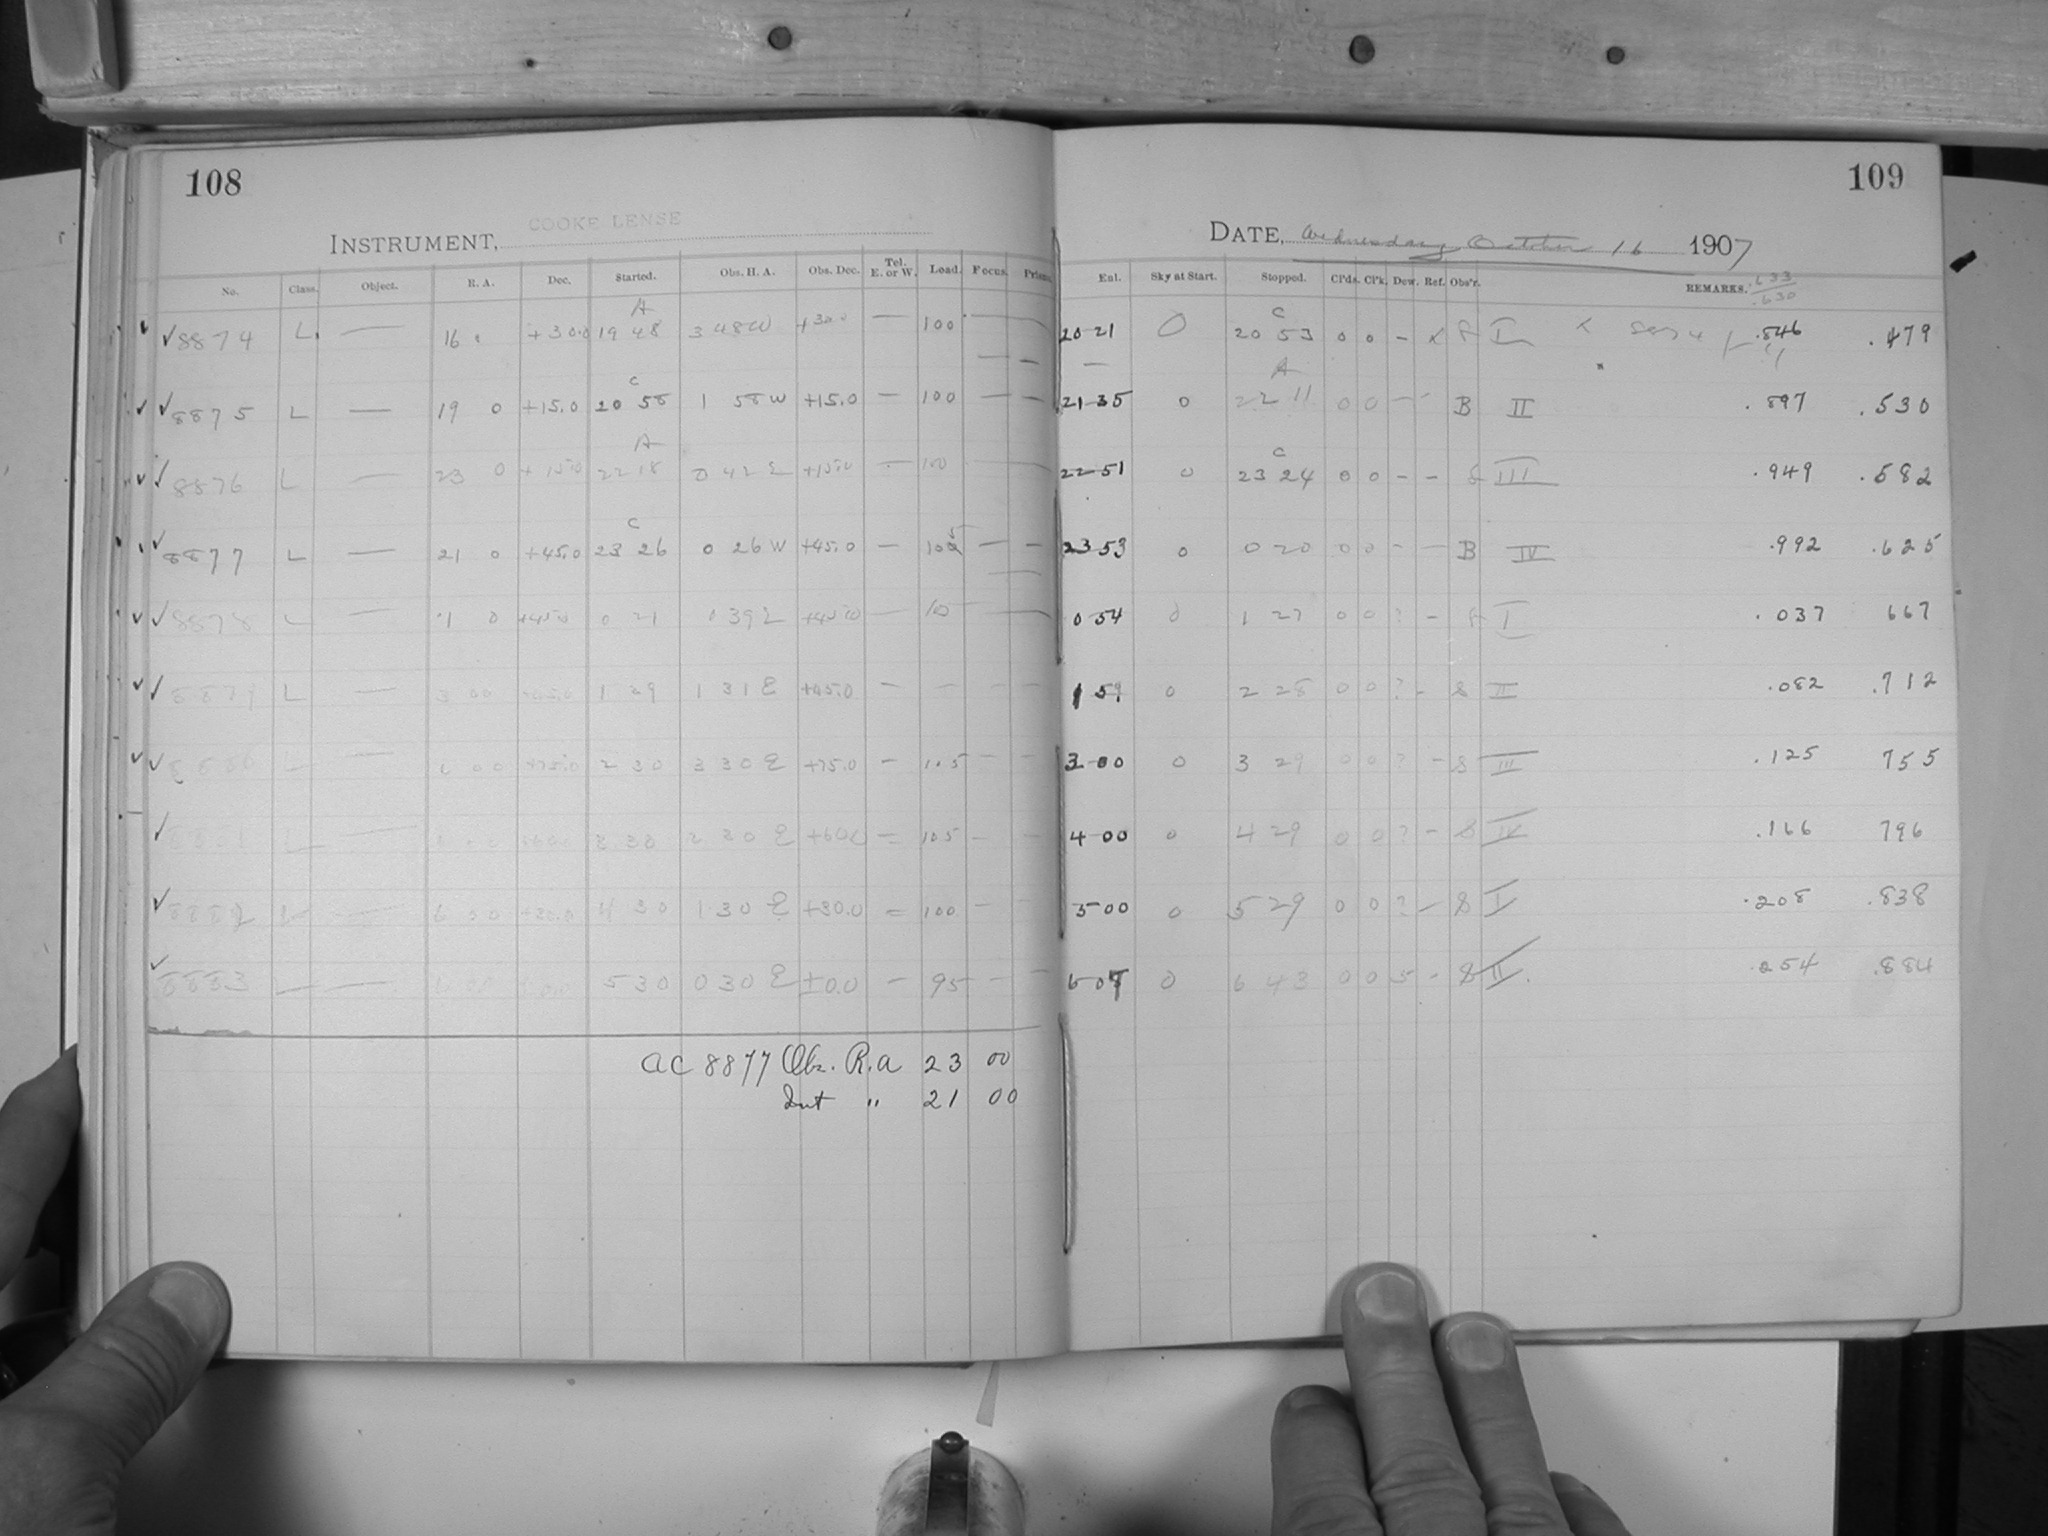 108
INSTRUMENT, COOKE LENSE
No. Class. Object. R. A. Dec. Started. Obs. H. A. Obs. Dec. Tel. E. or W. Load. Focus. Prism.
A
✓ 8874 L — 16 +30.0 19 48 3 48 W +30.0 — 100
C
✓ 8875 L — 19 0 +15.0 20 58 1 58 W +15.0 — 100 — —
A
✓ 8876 L — 23 0 +15.0 22 18 0 42 E +15.0 — 100
C
✓ 8877 L — 21 0 +45.0 23 26 0 26 W +45.0 — — —
✓ 8878 L — 1 0 +45.0 0 21 0 39 E +45.0 —
✓ L — 3 00 +45.0 1 29 1 31 E +45.0 — — —
✓ 00 +75.0 2 30 3 30 E +75.0 — 105 — —
✓ 3 30 2 30 E — 105 — —
✓ 6 00 +30.0 4 30 1 30 E +30.0 — 100 — —
✓ 8883 — 5 30 0 30 E ±0.0 — 95 — —
AC 8877 Obs. R.A 23 00
Int " 21 00
109
DATE, Wednesday October 16 1907
Enl. Sky at Start. Stopped. Cl'ds. Cl'k. Dew. Ref. Obs'r. REMARKS. .633
.630
C
20 21 0 20 53 0 0 – x S I .846 .479
A
21 35 0 22 11 0 0 – – B II .897 .530
C
22 51 0 23 24 0 0 – – S III .949 .582
23 53 0 0 20 0 0 – – B IV .992 .625
0 54 0 1 27 0 0 ? – S I .037 667
1 59 0 2 28 0 0 ? – S II .082 .712
3 00 0 3 29 0 0 ? – S III .125 755
4 00 0 4 29 0 0 ? – S IV .166 796
5 00 0 5 29 0 0 ? – S I .208 .838
0 6 43 0 0 5 – S II .254 .884